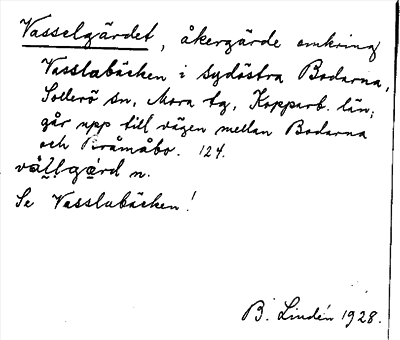 Vasselgärdet, åkergärde omkring
Vasslabäcken i sydöstra Bodarna,
Sollerö sn, Mora tg, Kopparb. län;
går upp till vägen mellan Bodarna
och 124.
n.
Se Vasslabäcken!
B. Lindén 1928.